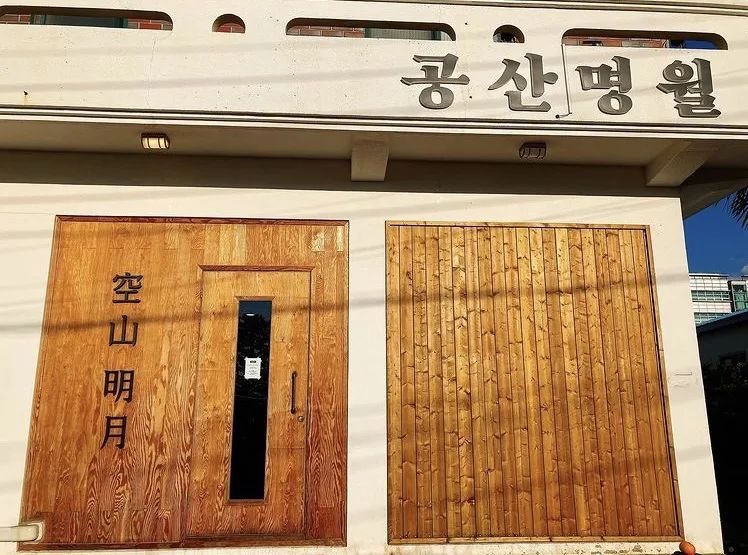 공산명월
空山明月